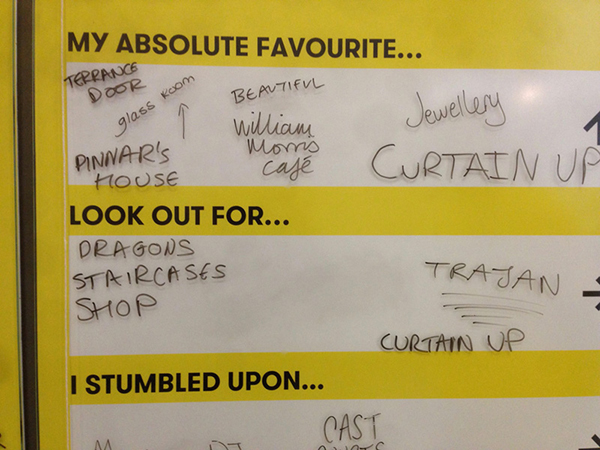 MY ABSOLUTE FAVOURITE...
TERRANCE
DOOR
glass ROOM
PINNAR'S
HOUSE
BEAUTIFUL
William
Morris
Café
Jewellery
CURTAIN UP
LOOK OUT FOR...
DRAGONS
STAIRCASES
SHOP
TRAJAN
CURTAIN UP
I STUMBLED UPON...
CAST